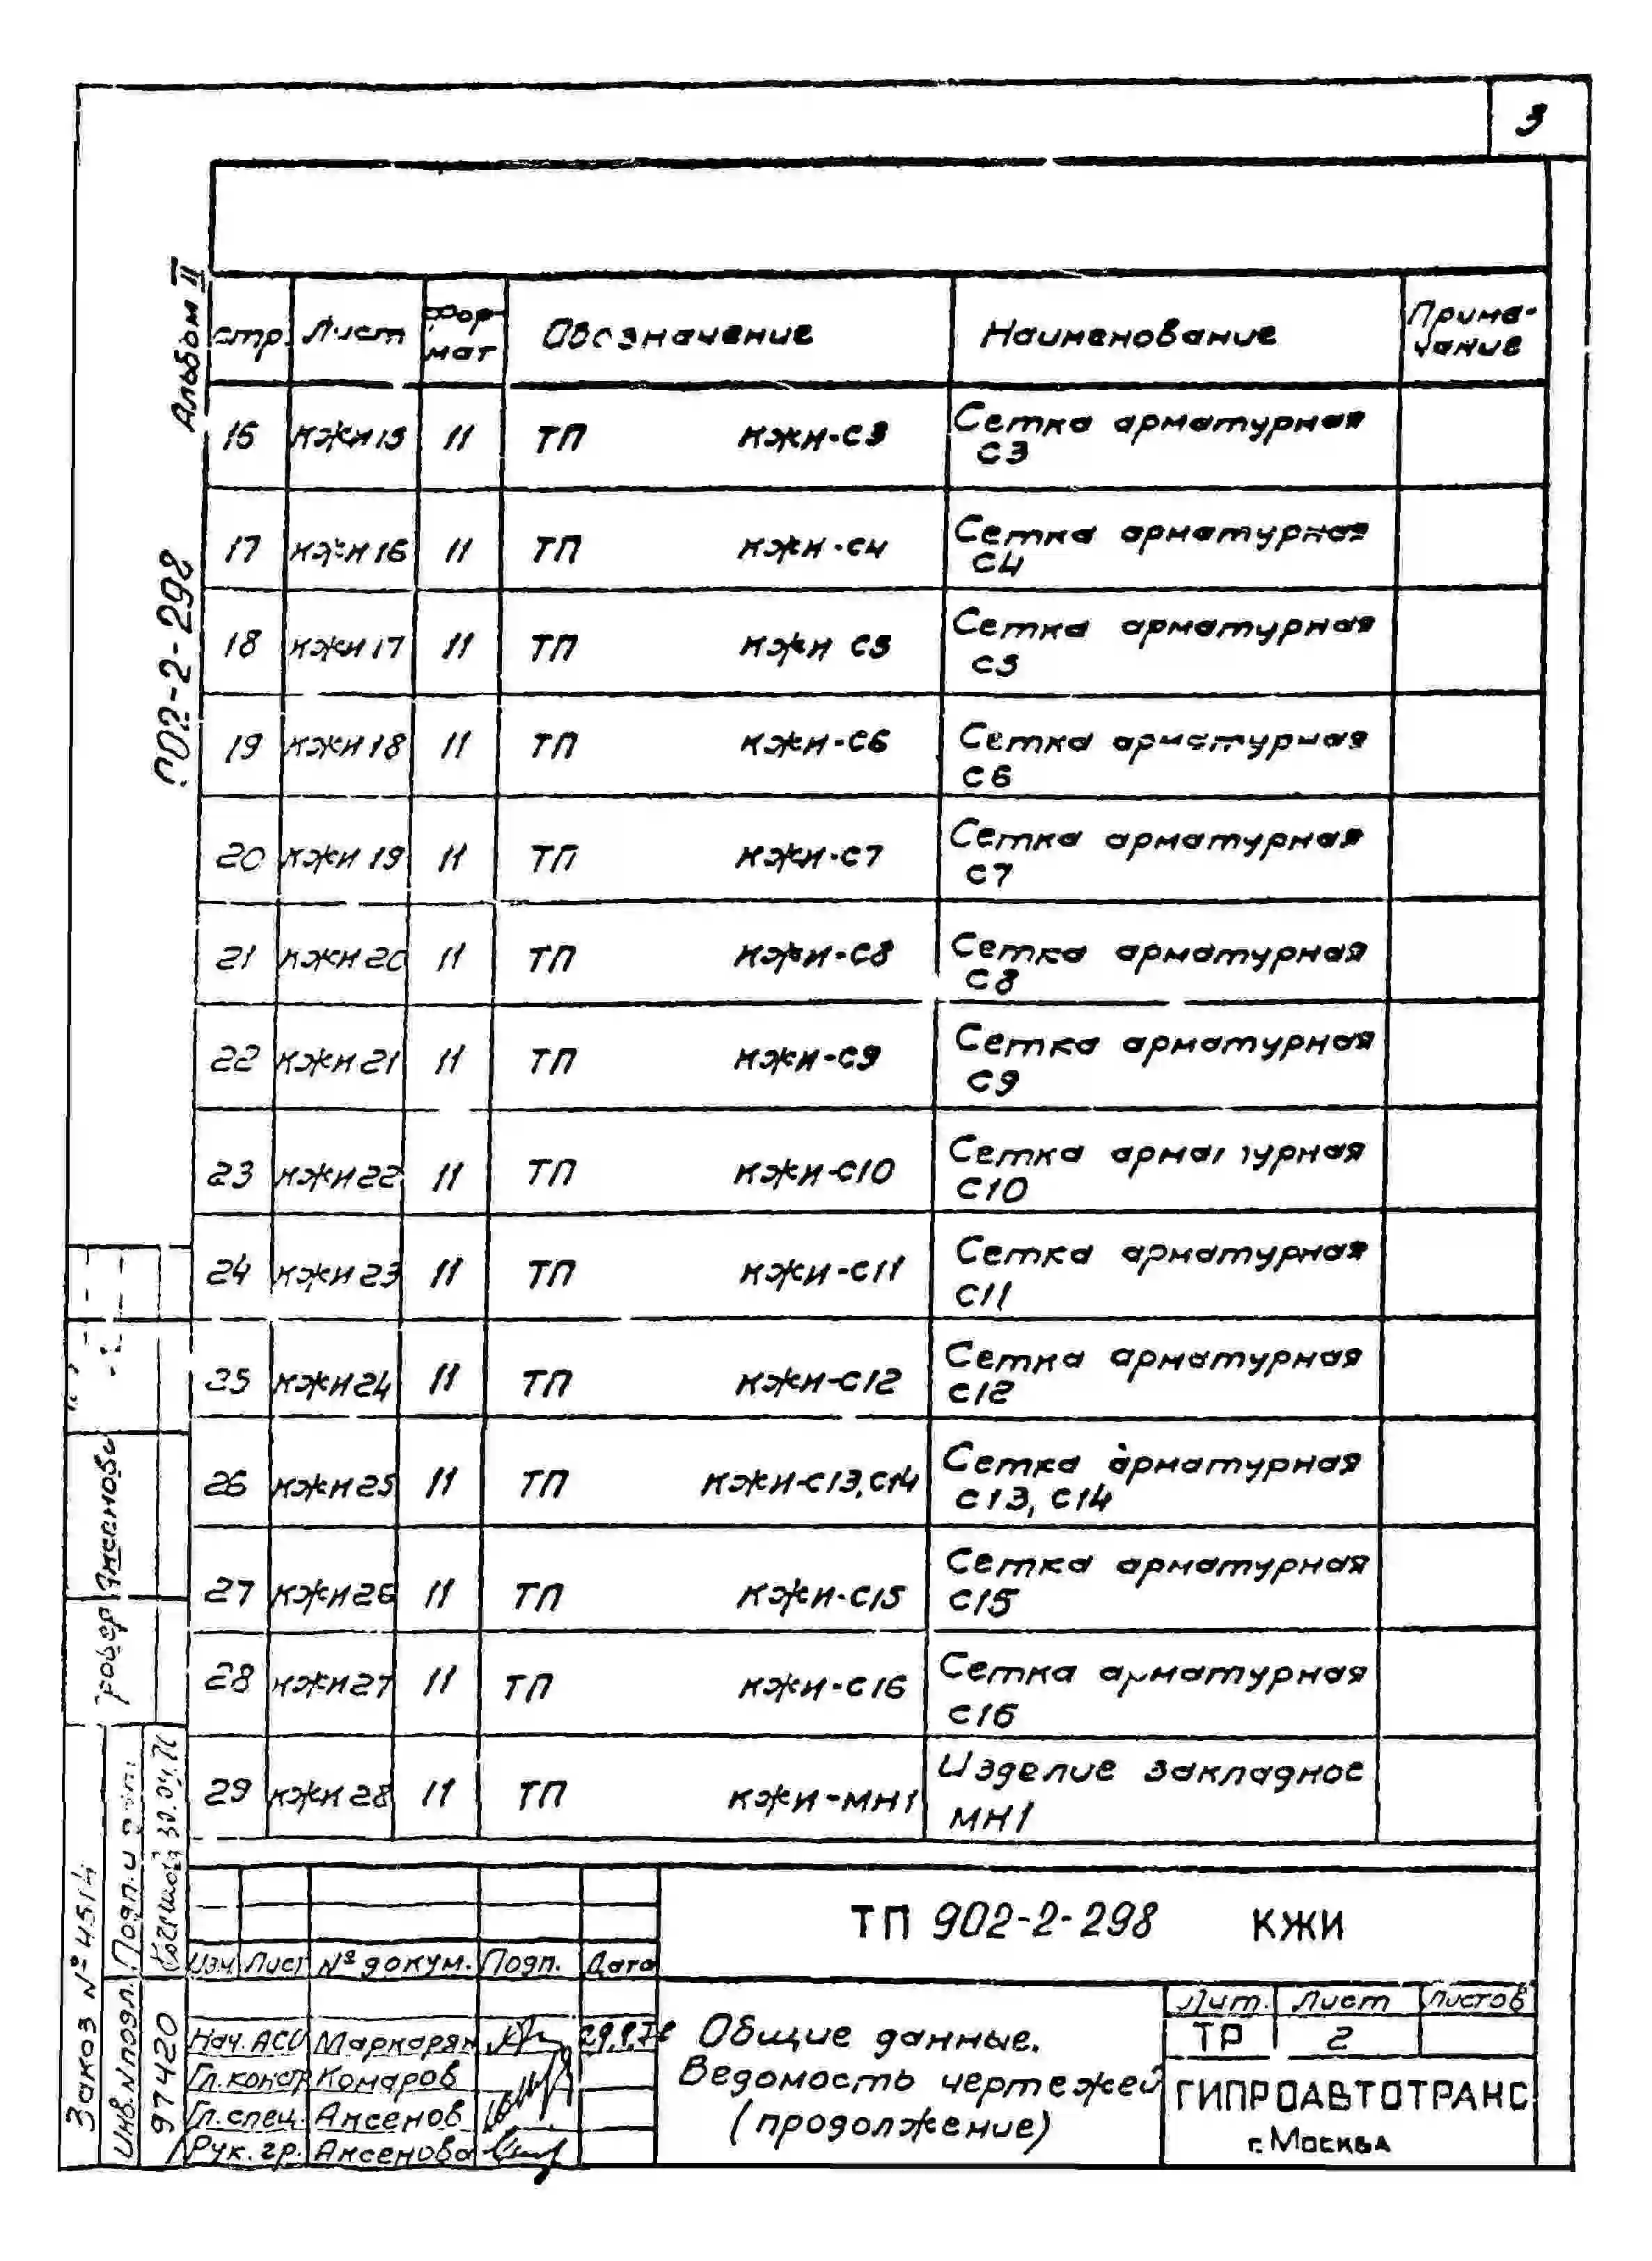 3
Альбом II
902-2-298
стр. Лист Фор-мат Обозначение Наименование Приме-чание
16 КЖИ 15 11 ТП КЖИ-С3 Сетка арматурная
С3
17 КЖИ 16 11 ТП КЖИ-С4 Сетка арматурная
С4
18 КЖИ 17 11 ТП КЖИ С5 Сетка арматурная
С5
19 КЖИ 18 11 ТП КЖИ-С6 Сетка арматурная
С6
20 КЖИ 19 11 ТП КЖИ-С7 Сетка арматурная
С7
21 КЖИ 20 11 ТП КЖИ-С8 Сетка арматурная
С8
22 КЖИ 21 11 ТП КЖИ-С9 Сетка арматурная
С9
23 КЖИ 22 11 ТП КЖИ-С10 Сетка арматурная
С10
24 КЖИ 23 11 ТП КЖИ-С11 Сетка арматурная
С11
25 КЖИ 24 11 ТП КЖИ-С12 Сетка арматурная
С12
26 КЖИ 25 11 ТП КЖИ-С13,С14 Сетка арматурная
С13, С14
27 КЖИ 26 11 ТП КЖИ-С15 Сетка арматурная
С15
28 КЖИ 27 11 ТП КЖИ-С16 Сетка арматурная
С16
29 КЖИ 28 11 ТП КЖИ-МН1 Изделие закладное
МН1
ТП 902-2-298 КЖИ
Изм. Лист № докум. Подп. Дата
Нач. АСО Маркарян
Гл. констр Комаров
Гл. спец. Аксенов
Рук. гр. Аксенова
Общие данные.
Ведомость чертежей
(продолжение)
Лит. Лист Листов
ТР 2
ГИПРОАВТОТРАНС
г. Москва
Заказ № 4514
Инв. N подл. Подп. и
97420
30.04.76
Аксенова